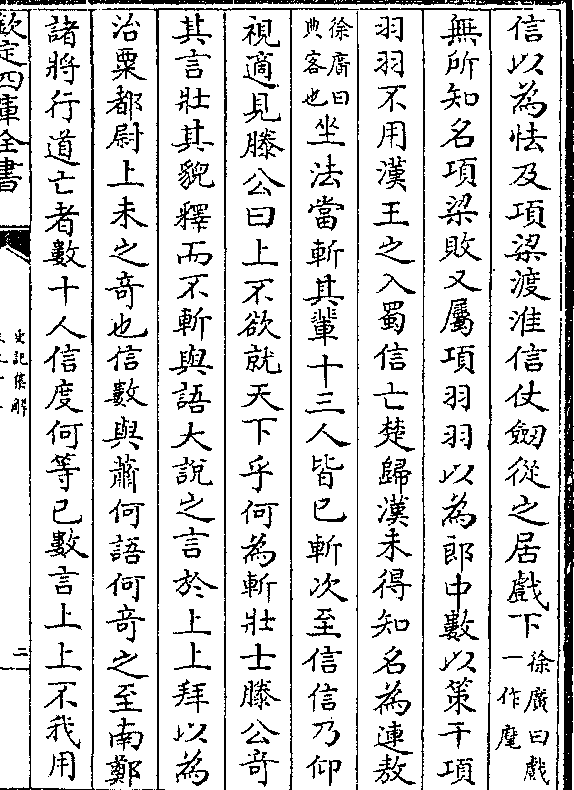 信以為怯及項梁渡淮信仗劒從之居戲下徐廣曰戲一作麾
無所知名項梁敗又屬項羽羽以為郎中數以策干項
羽羽不用漢王之入蜀信亡楚歸漢未得知名為連敖
徐廣曰典客也坐法當斬其輩十三人皆已斬次至信信乃仰
視適見滕公曰上不欲就天下乎何為斬壯士滕公竒
其言壯其貌釋而不斬與語大說之言於上上拜以為
治粟都尉上未之竒也信數與蕭何語何竒之至南鄭
諸將行道亡者數十人信度何等已數言上上不我用
欽定四庫全書
史記集解
二